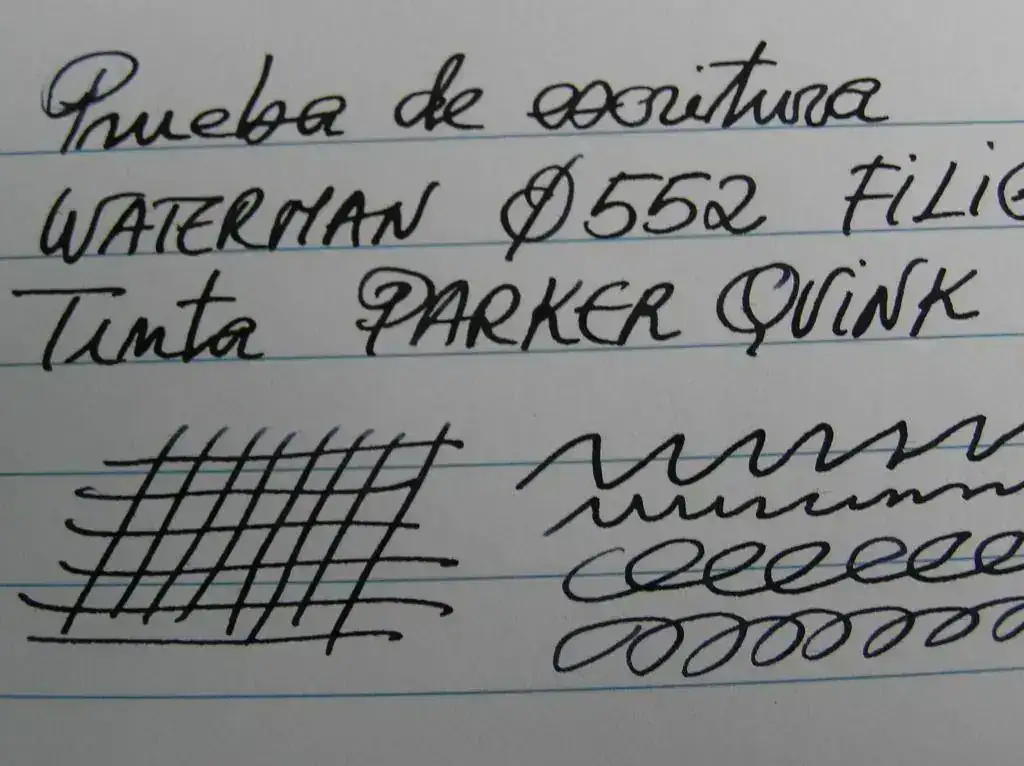 Prueba de escritura
WATERMAN 0552 FiLiG
Tinta PARKER QUiNK